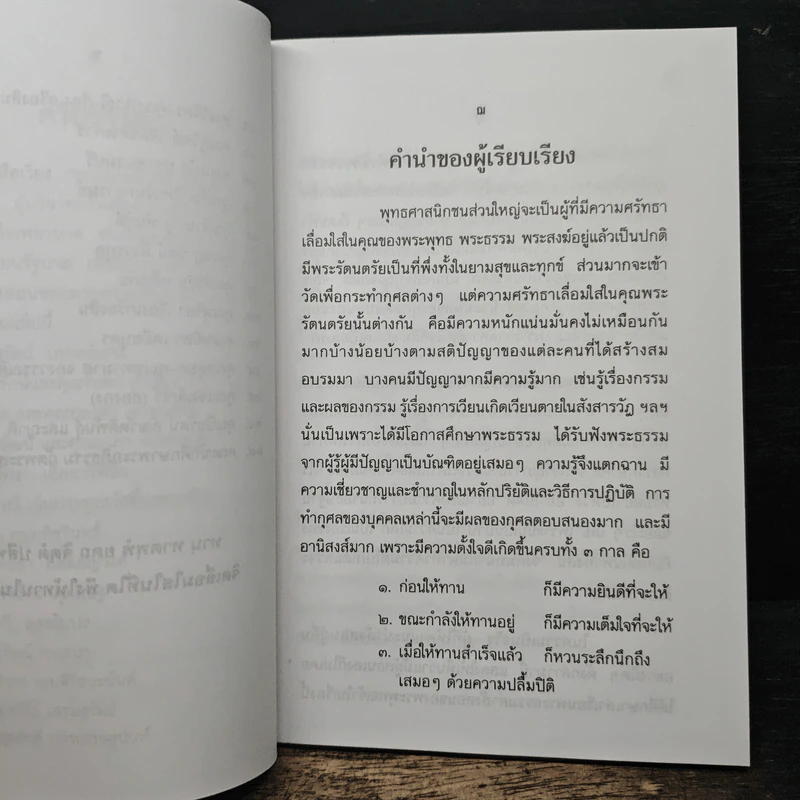 ฌ
คำนำของผู้เรียบเรียง
พุทธศาสนิกชนส่วนใหญ่จะเป็นผู้ที่มีความศรัทธา
เลื่อมใสในคุณของพระพุทธ พระธรรม พระสงฆ์อยู่แล้วเป็นปกติ
มีพระรัตนตรัยเป็นที่พึ่งทั้งในยามสุขและทุกข์ ส่วนมากจะเข้า
วัดเพื่อกระทำกุศลต่างๆ แต่ความศรัทธาเลื่อมใสในคุณพระ
รัตนตรัยนั้นต่างกัน คือมีความหนักแน่นมั่นคงไม่เหมือนกัน
มากบ้างน้อยบ้างตามสติปัญญาของแต่ละคนที่ได้สร้างสม
อบรมมา บางคนมีปัญญามากมีความรู้มาก เช่นรู้เรื่องกรรม
และผลของกรรม รู้เรื่องการเวียนเกิดเวียนตายในสังสารวัฏ ฯลฯ
นั่นเป็นเพราะได้มีโอกาสศึกษาพระธรรม ได้รับฟังพระธรรม
จากผู้รู้ผู้มีปัญญาเป็นบัณฑิตอยู่เสมอๆ ความรู้จึงแตกฉาน มี
ความเชี่ยวชาญและชำนาญในหลักปริยัติและวิธีการปฏิบัติ การ
ทำกุศลของบุคคลเหล่านี้จะมีผลของกุศลตอบสนองมาก และมี
อานิสงส์มาก เพราะมีความตั้งใจดีเกิดขึ้นครบทั้ง ๓ กาล คือ
๑. ก่อนให้ทาน ก็มีความยินดีที่จะให้
๒. ขณะกำลังให้ทานอยู่ ก็มีความเต็มใจที่จะให้
๓. เมื่อให้ทานสำเร็จแล้ว ก็หวนระลึกนึกถึง
เสมอๆ ด้วยความปลื้มปิติ